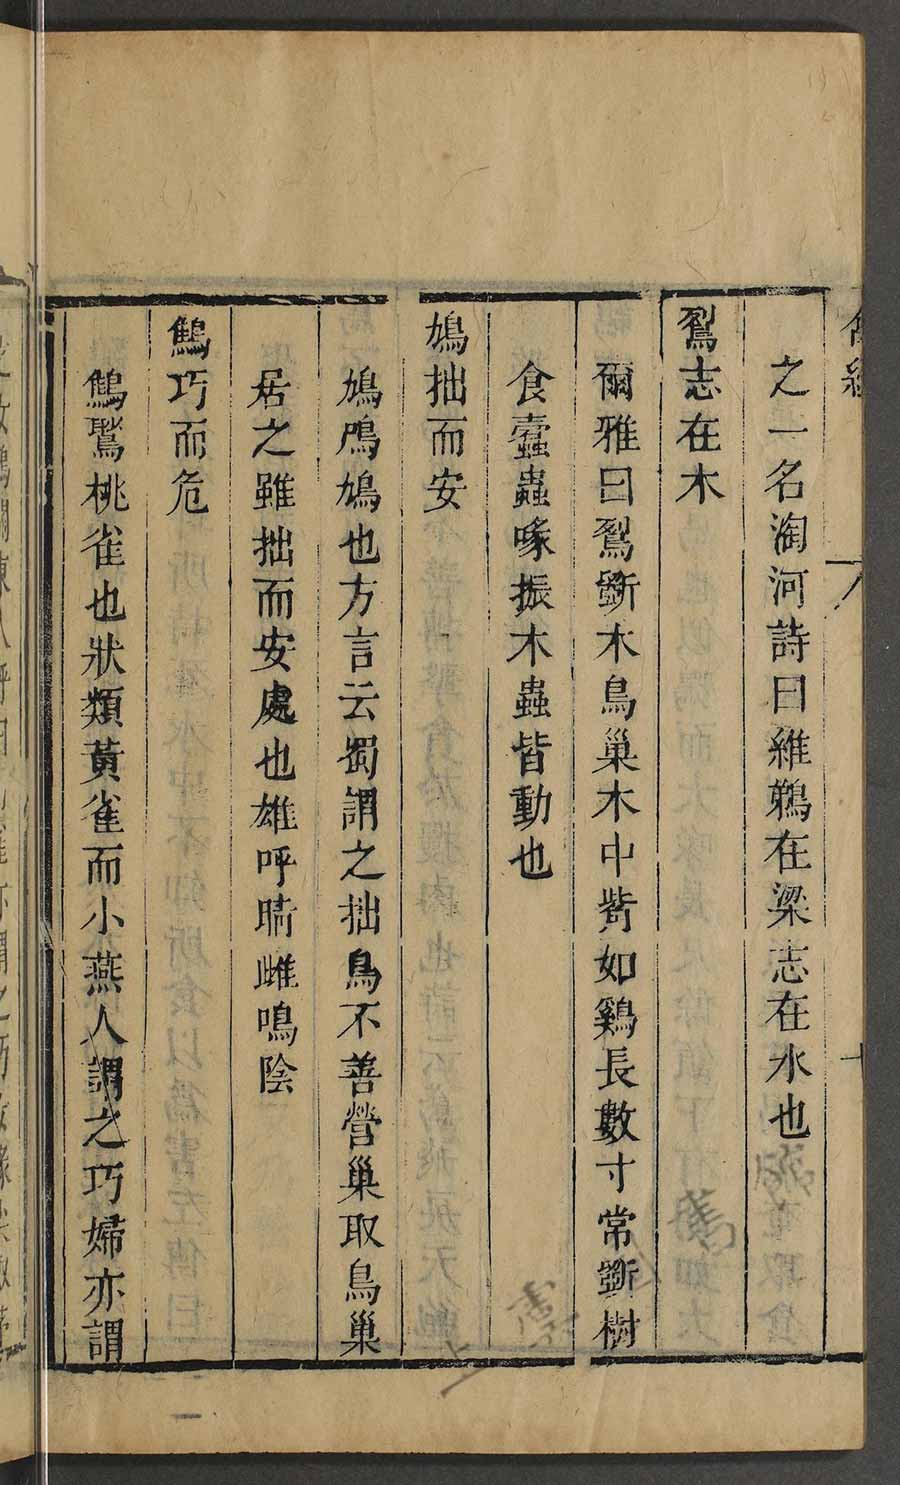 之一名淘河詩曰維鵜在梁志在水也
鴷志在木
爾雅曰鴷斵木鳥巢木中觜如雞長數寸常斵樹
食蠧蟲喙振木蟲皆動也
鳩拙而安
鳩鳲鳩也方言云蜀謂之拙鳥不善營巢取鳥巢
居之雖拙而安處也雄呼晴雌鳴陰
鷦巧而危
鷦鷯桃雀也狀類黃雀而小燕人謂之巧婦亦謂